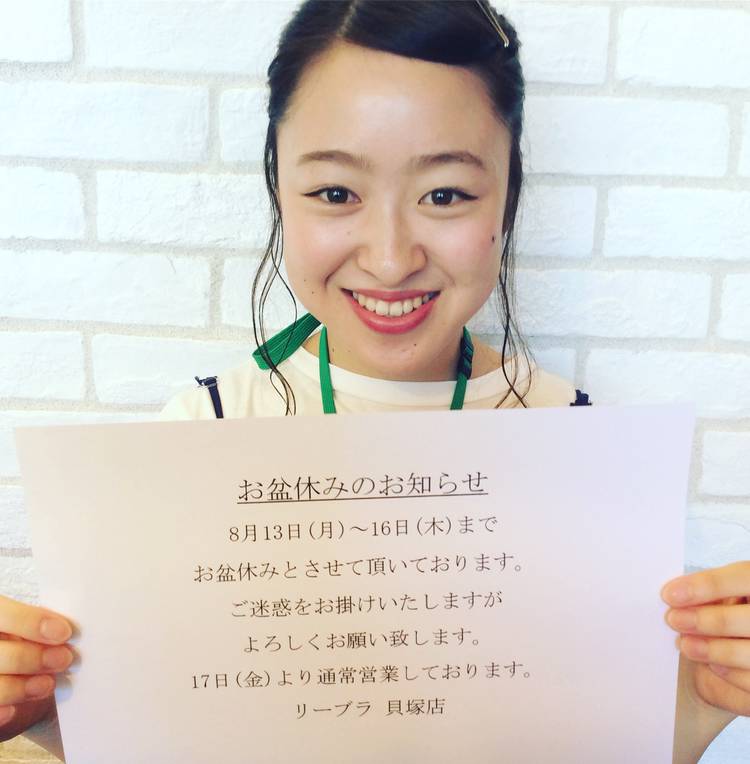 お盆休みのお知らせ
8月13日(月)～16日(木)まで
お盆休みとさせて頂いております。
ご迷惑をお掛けいたしますが
よろしくお願い致します。
17日(金)より通常営業しております。
リーブラ 貝塚店